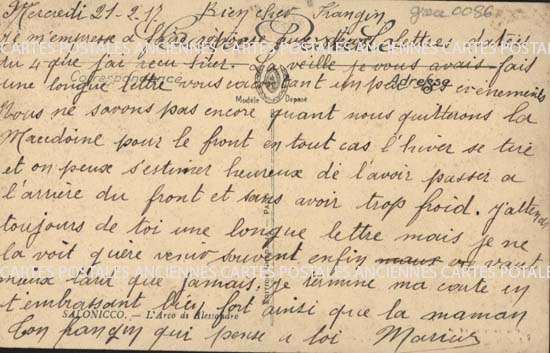 Mercredi 21-2-17 Bien cher Frangin grece 0086
Je m'empresse a faire reponse a lettres datées
du 4 que j'ai reçu hier. La veille je vous avais fait
Correspondance Adresse
une longue lettre vous un peu évènements
Modèle Déposé
Nous ne savons pas encore quant nous quitterons la
Macedoine pour le front en tout cas l'hiver se tire
et on peux s'estimer heureux de l'avoir passer a
l'arrière du front et sans avoir trop froid. J'attends
toujours de toi une longue lettre mais je ne
la voit guère venir souvent enfin vaut
mieux tard que jamais. Je termine ma carte en
t'embrassant bien fort ainsi que la maman
SALONICCO. — L'Arco di Alessandro
Ton frangin qui pense a toi Marius
CARTES POSTALES ANCIENNES CARTES POSTALES ANCIENNES CARTES POSTALES